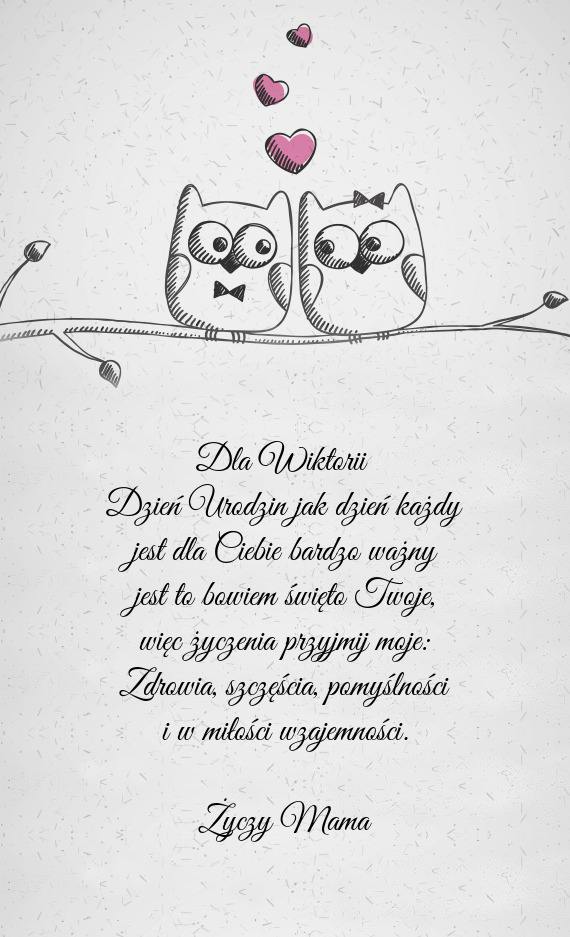 Dla Wiktorii
Dzień Urodzin jak dzień każdy
jest dla Ciebie bardzo ważny
jest to bowiem święto Twoje,
więc życzenia przyjmij moje:
Zdrowia, szczęścia, pomyślności
i w miłości wzajemności.
Życzy Mama